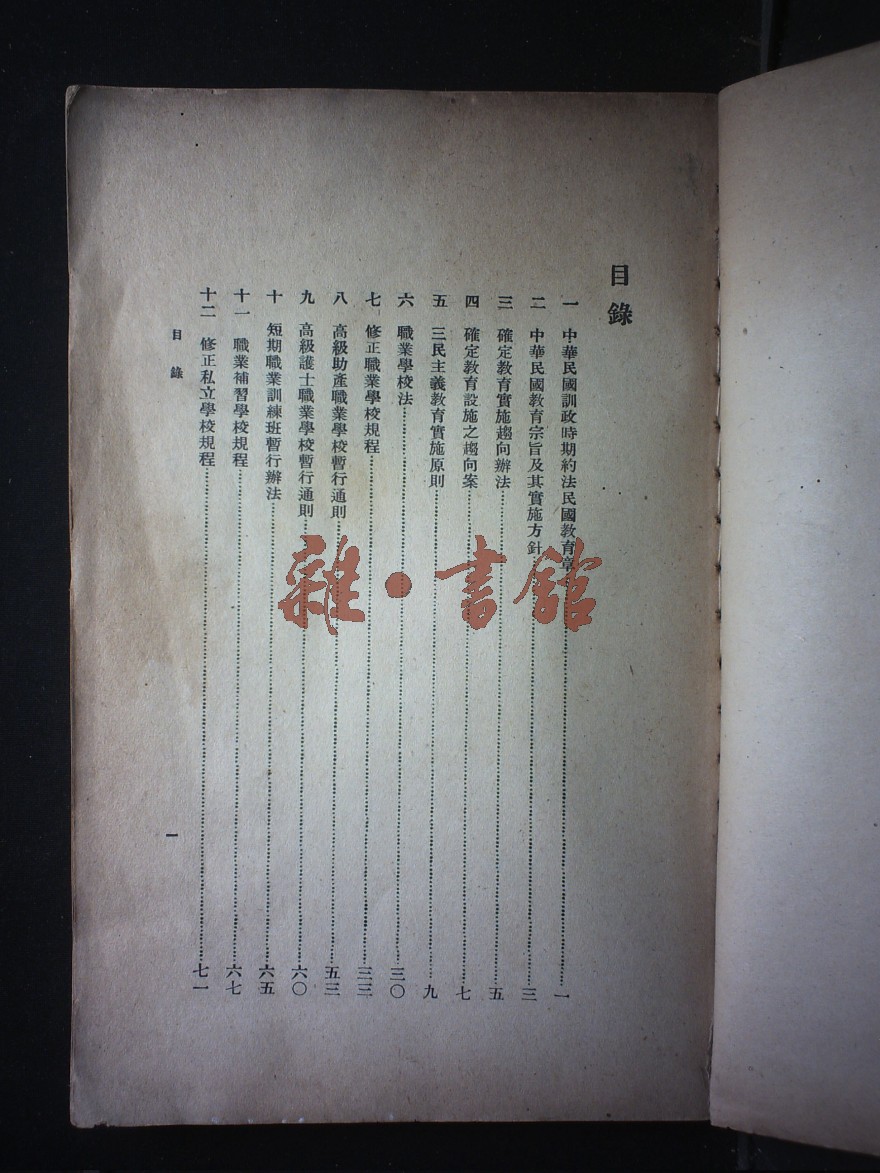 目錄
一 中華民國訓政時期約法民國教育章……一
二 中華民國教育宗旨及其實施方針……三
三 確定教育實施趨向辦法……五
四 確定教育設施之趨向案……七
五 三民主義教育實施原則……九
六 職業學校法……三〇
七 修正職業學校規程……三三
八 高級助產職業學校暫行通則……五三
九 高級護士職業學校暫行通則……六〇
十 短期職業訓練班暫行辦法……六五
十一 職業補習學校規程……六七
十二 修正私立學校規程……七一
目錄
一
雜·書館